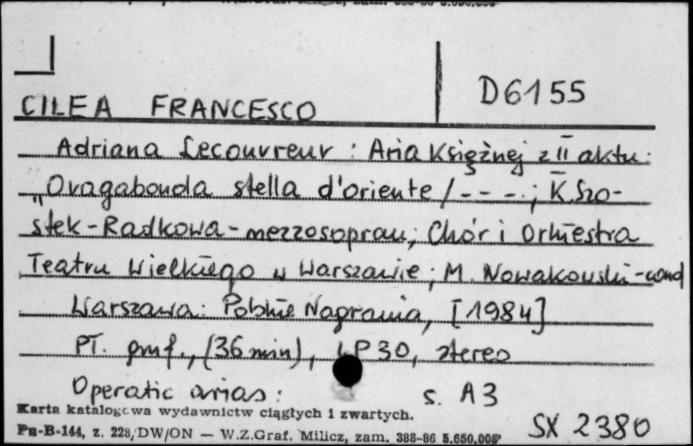 D6155
CILEA FRANCESCO
Adriana Lecouvreur : Aria Księżnej z II aktu:
„O vagabonda stella d'oriente / - - - ; K. Szo-
stek-Radkowa - mezzosopran; Chór i Orkiestra
Teatru Wielkiego w Warszawie ; M. Nowakowski - cond
Warszawa: Polskie Nagrania, [1984]
Pł. gmf., (36 min), LP 30, stereo
Operatic arias: s. A3
Karta katalogowa wydawnictw ciągłych i zwartych.
Pu-B-144, z. 228/DW/ON — W.Z.Graf. Milicz, zam. 388-86 5.650.000
SX 2380